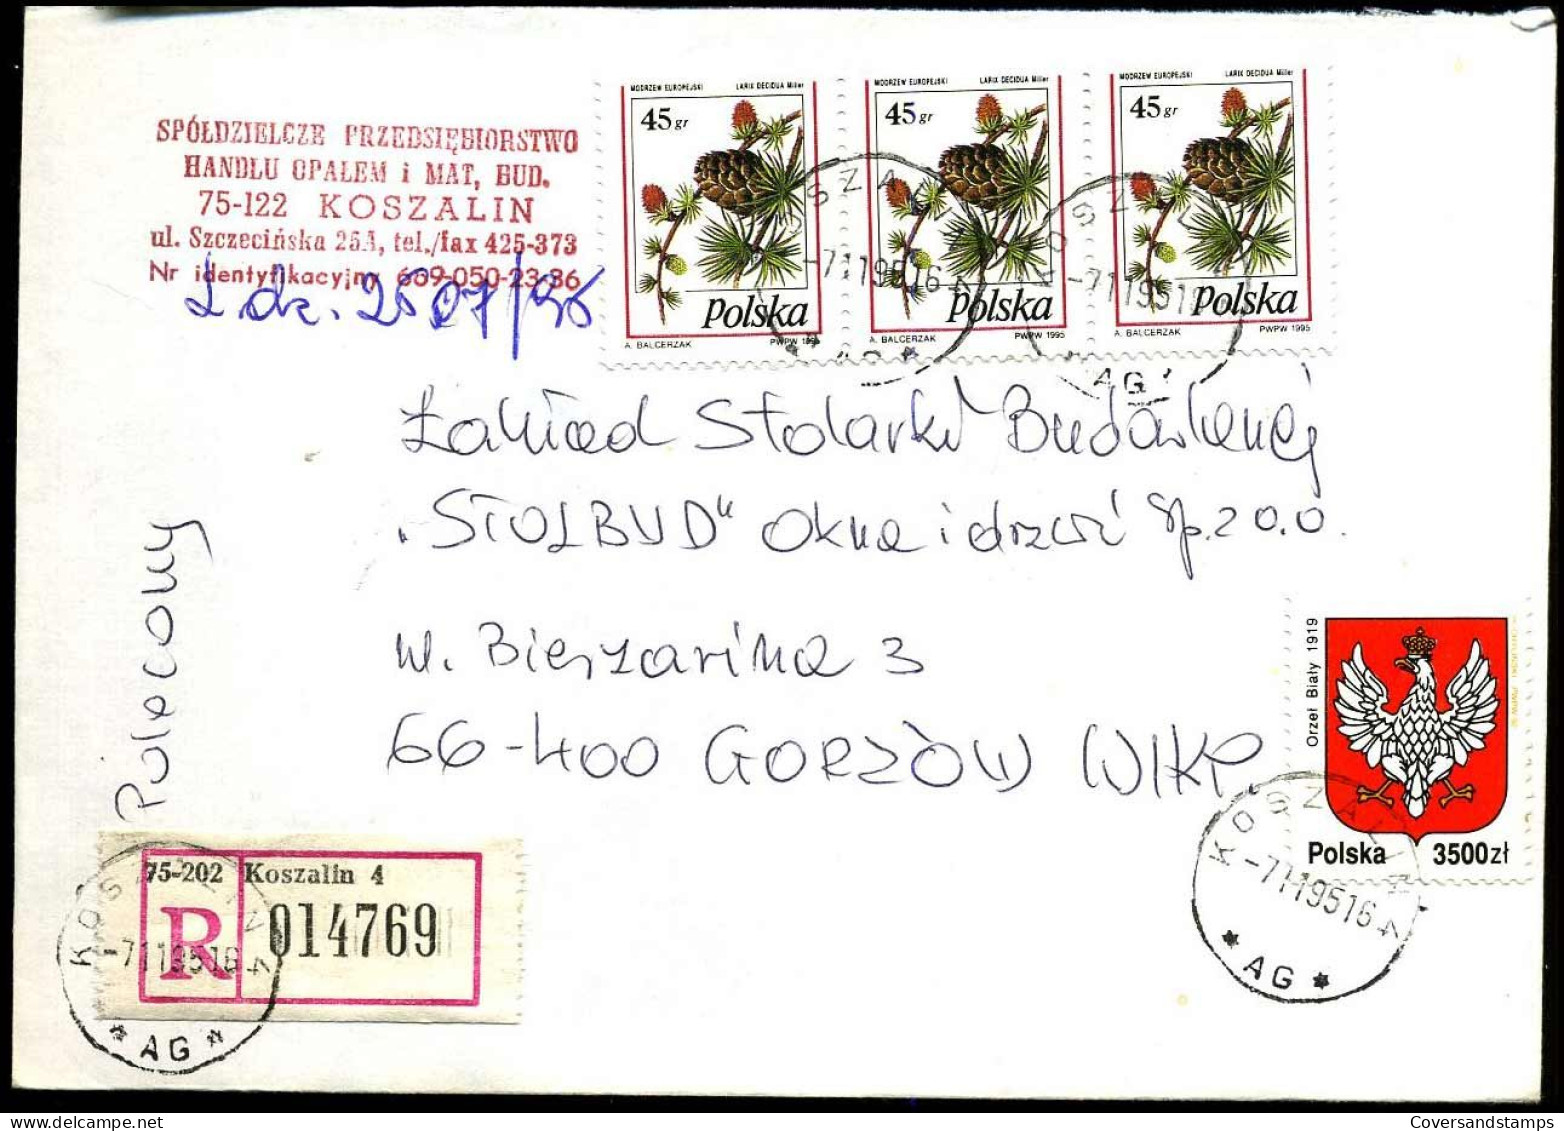 SPÓŁDZIELCZE PRZEDSIĘBIORSTWO
HANDLU OPAŁEM i MAT, BUD.
75-122 KOSZALIN
ul. Szczecińska 25A, tel./fax 425-373
Nr identyfikacyjny 669-050-23-36
L.dz. 2507/95
MODRZEW EUROPEJSKI LARIX DECIDUA Miller
45 gr
Polska
A. BALCERZAK PWPW 1995
MODRZEW EUROPEJSKI LARIX DECIDUA Miller
45 gr
Polska
A. BALCERZAK PWPW 1995
MODRZEW EUROPEJSKI LARIX DECIDUA Miller
45 gr
Polska
A. BALCERZAK PWPW 1995
KOSZALIN 4
-711199516
KOSZALIN
-711195 1
AG
Zakład Stolarki Budowlanej
„STOLBUD" Okna i drzwi Sp. z o.o.
ul. Bierzarina 3
66-400 GORZÓW WLKP.
Polecony
Orzeł Biały 1919
Polska 3500 zł
KOSZALIN 4
-711195 16
* AG *
75-202 Koszalin 4
R 014769
KOSZALIN 4
-711195 16
* AG *
Coversandstamps